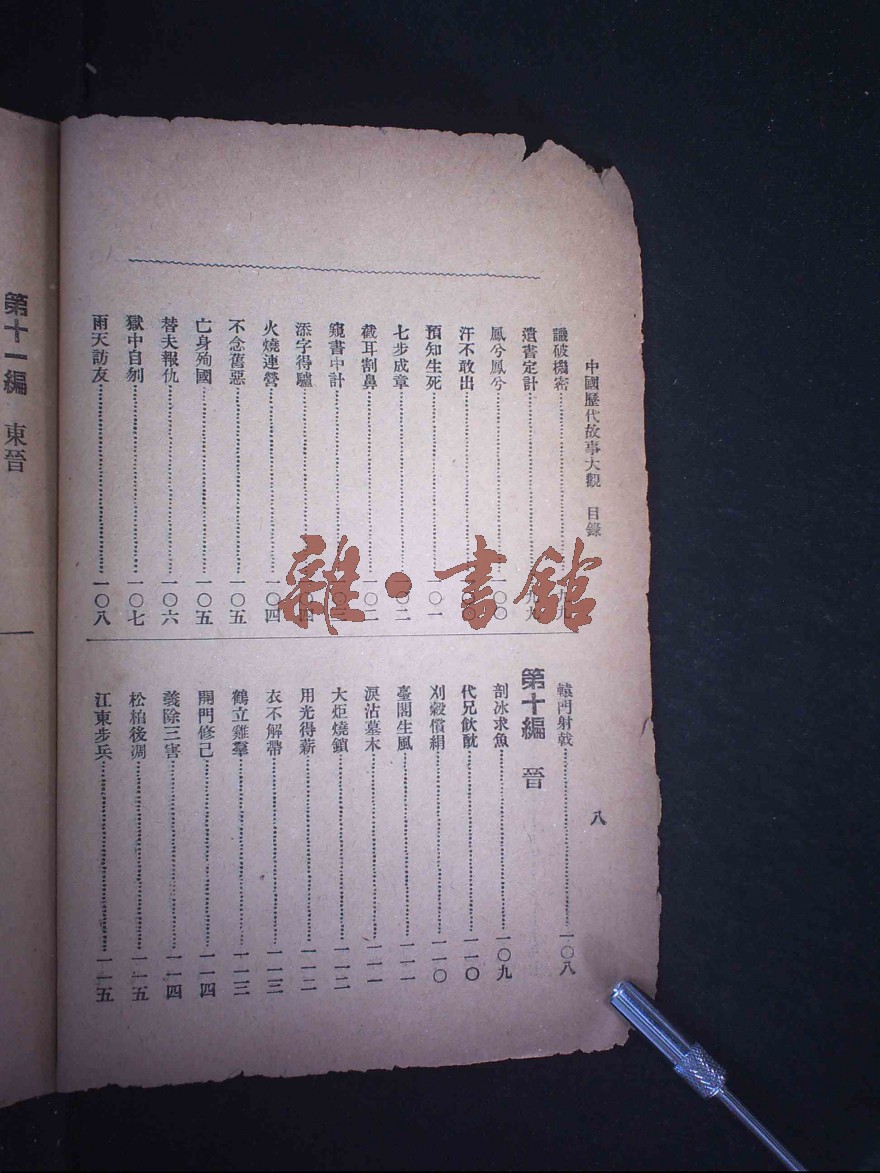 中國歷代故事大觀 目錄
八
識破機密 九九
遺書定計 九九
鳳兮鳳兮 一〇〇
汗不敢出
預知生死 一〇一
七步成章 一〇二
截耳割鼻 一〇二
窺書中計
添字得驢
火燒連營 一〇四
不念舊惡 一〇五
亡身殉國 一〇五
替夫報仇 一〇六
獄中自刎 一〇七
雨天訪友 一〇八
轅門射戟 一〇八
第十編 晉
剖冰求魚 一〇九
代兄飲酖 一一〇
刈穀償絹 一一〇
臺閣生風 一一一
淚沾墓木 一一一
大炬燒鎖 一一二
用光得薪 一一二
衣不解帶 一一三
鶴立雞羣 一一三
開門修己 一一四
義除三害 一一四
松柏後凋 一一五
江東步兵 一一五
第十一編 東晉
雜·書館